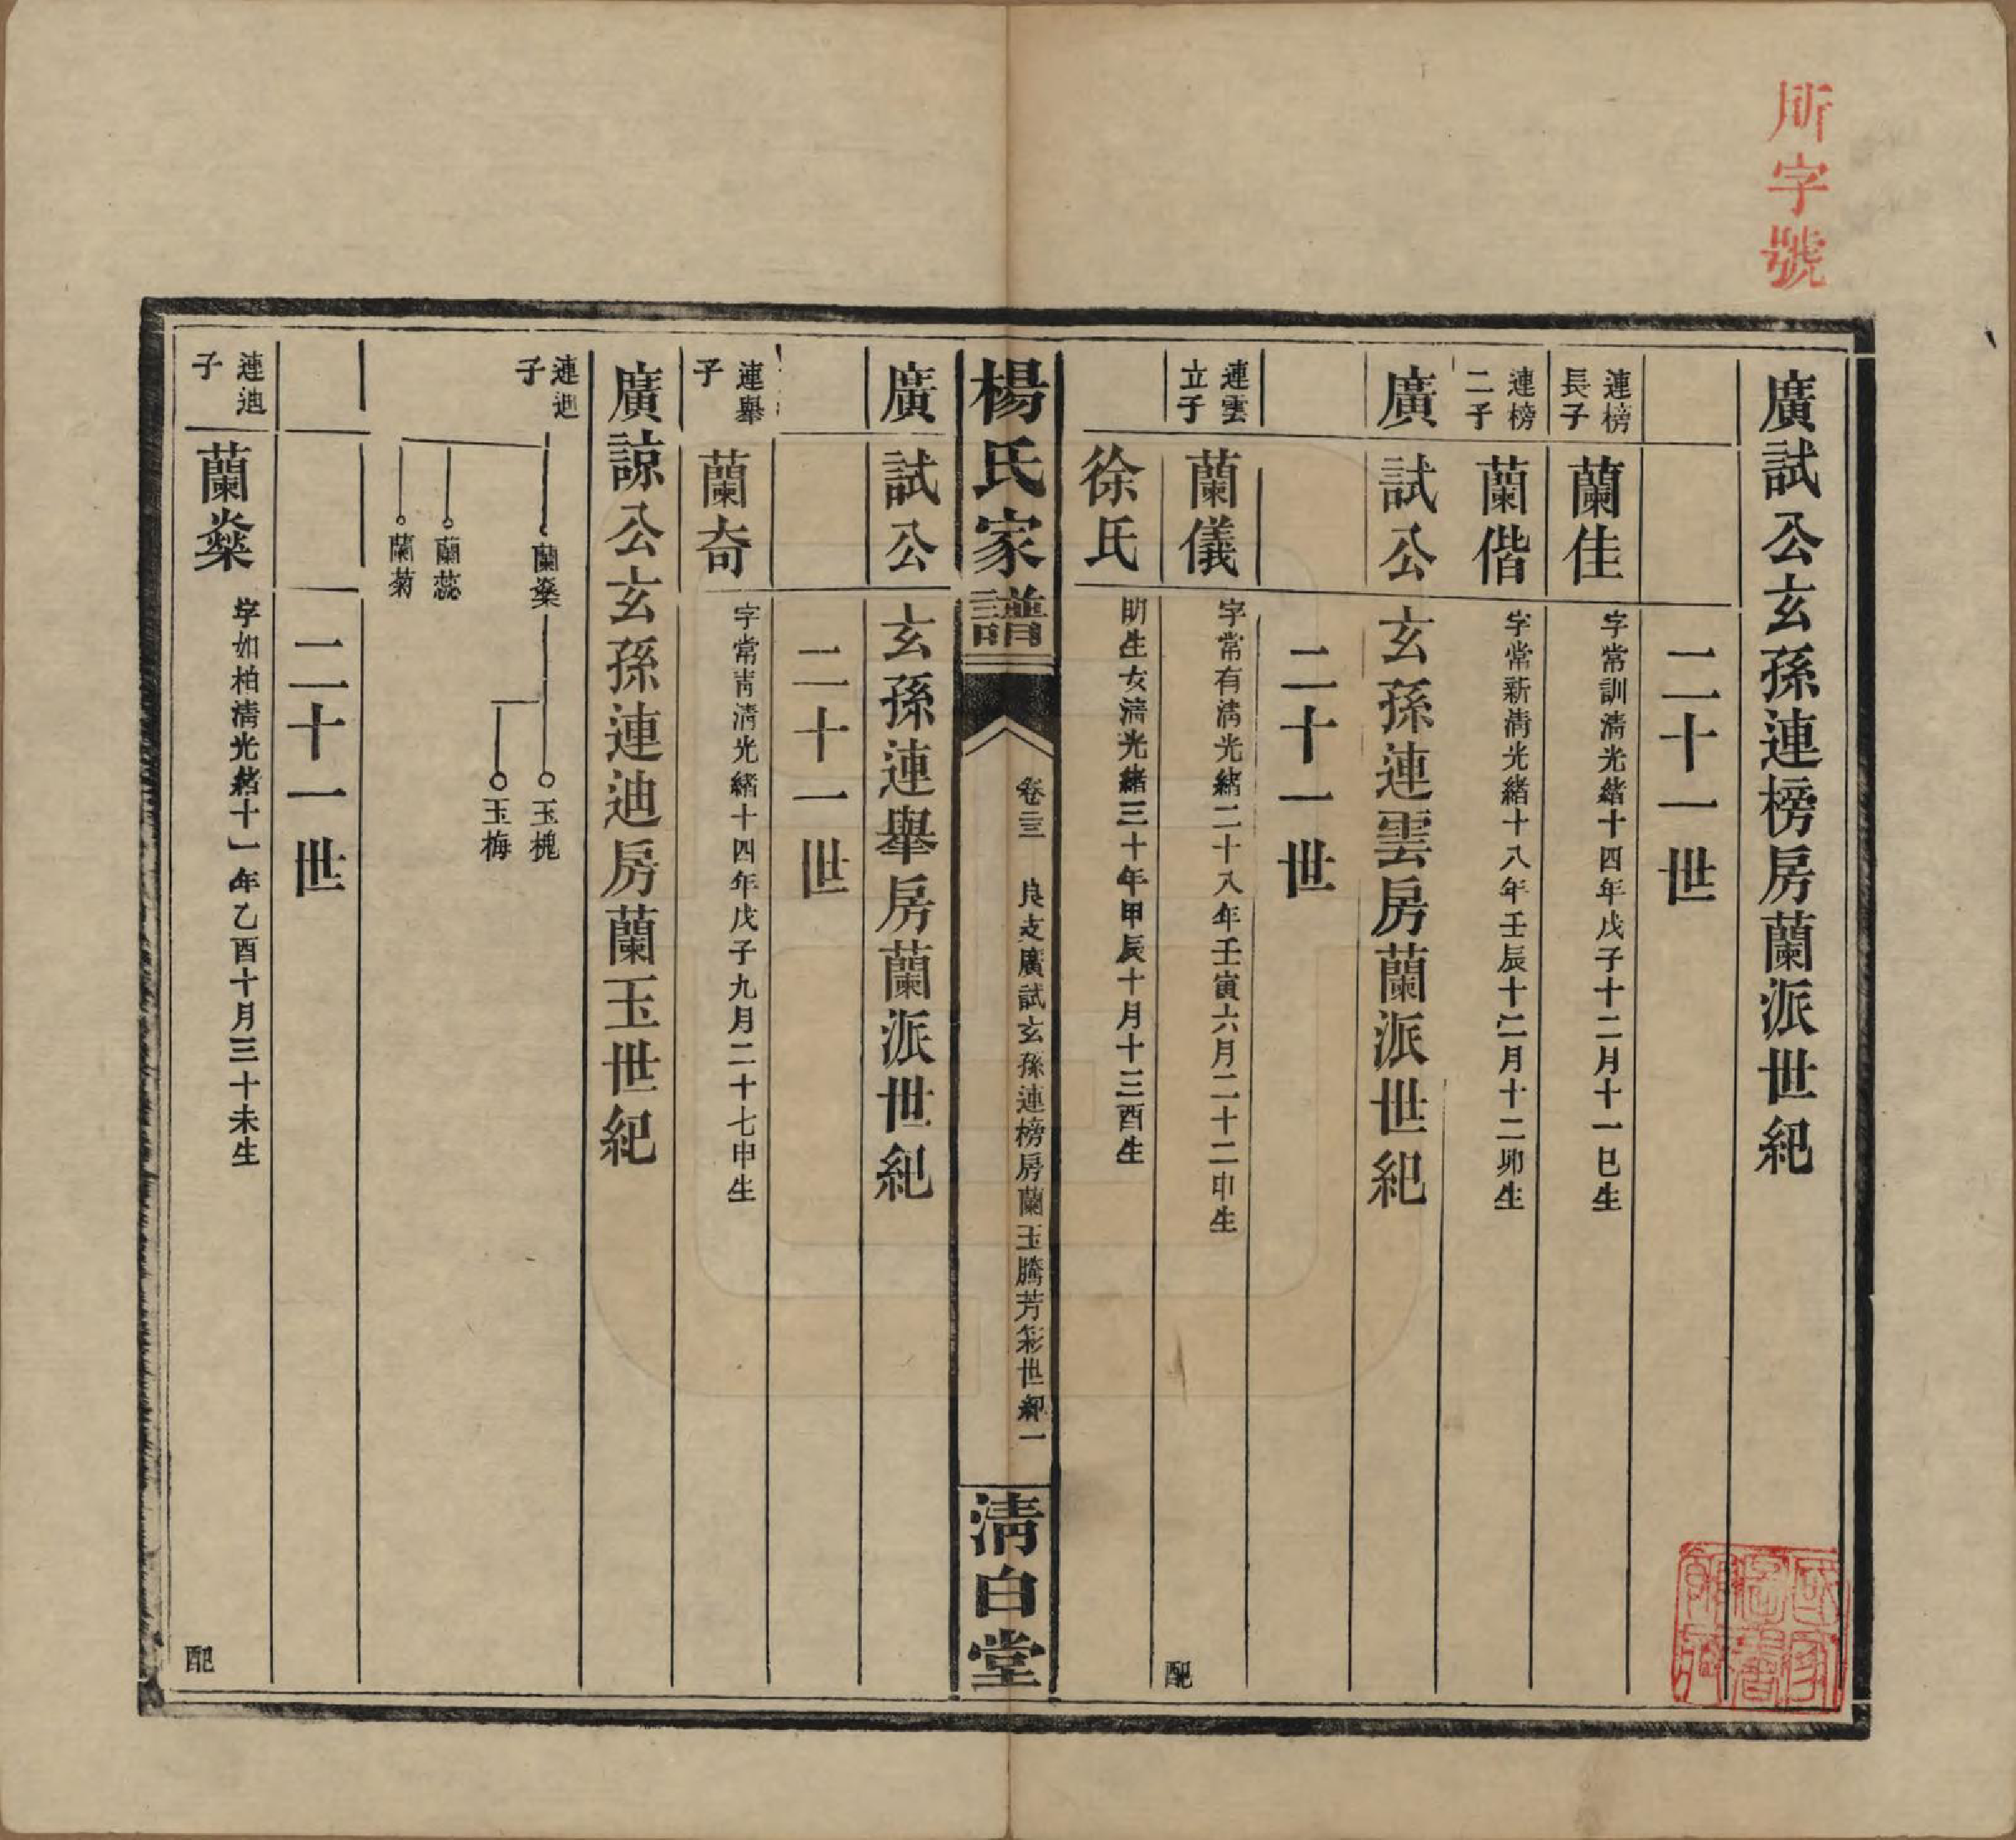 所字號
廣試公玄孫連榜房蘭派世紀
二十一世
連榜長子
蘭佳
字常訓清光緒十四年戊子十二月十一巳生
連榜二子
蘭偕
字常新清光緒十八年壬辰十二月十二卯生
廣試公玄孫連雲房蘭派世紀
二十一世
連雲立子
蘭儀
字常有清光緒二十八年壬寅六月二十二申生
徐氏
明生女清光緒三十年甲辰十月十三酉生
配
楊氏家譜
卷二三
良支廣試玄孫連榜房蘭玉騰芳彩世紀一
清白堂
廣試公玄孫連舉房蘭派世紀
二十一世
連舉子
蘭奇
字常青清光緒十四年戊子九月二十七申生
廣諒公玄孫連迪房蘭玉世紀
連迪子
蘭燊
玉槐
玉梅
蘭蕊
蘭菊
二十一世
連迪子
蘭燊
字如柏清光緒十一年乙酉十月三十未生
配